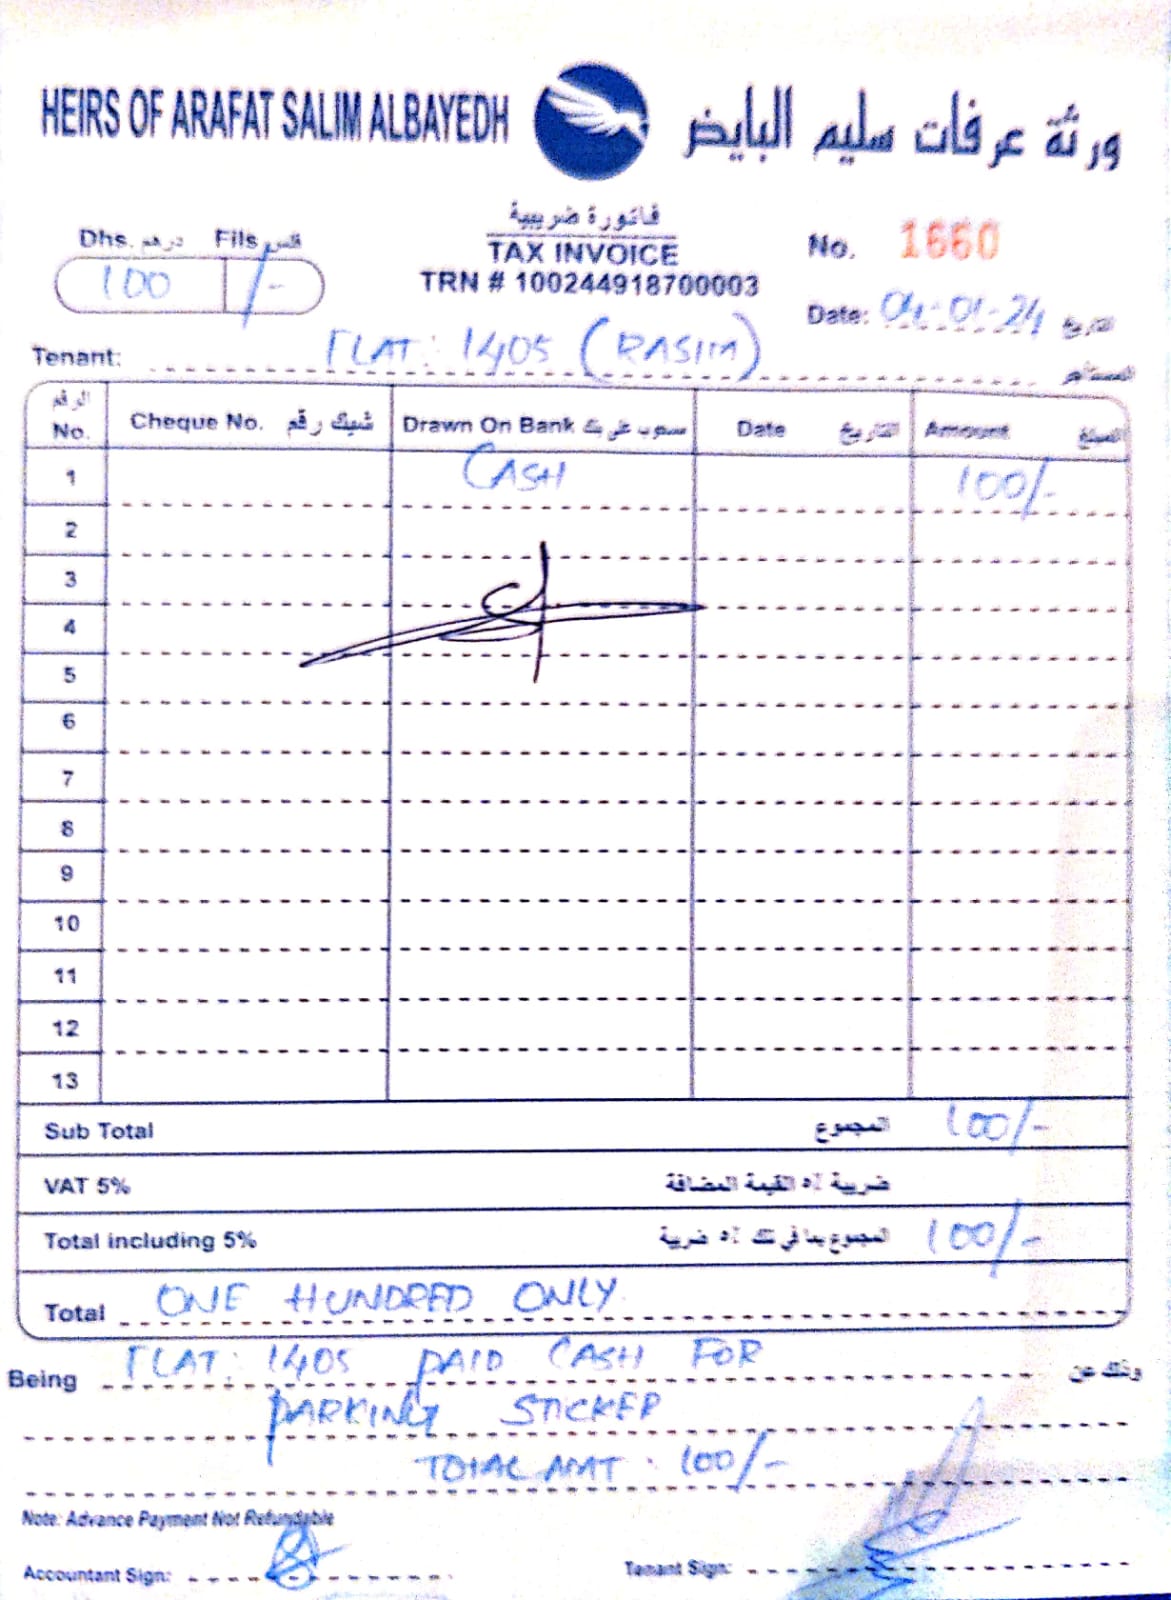 HEIRS OF ARAFAT SALIM ALBAYEDH ورثة عرفات سليم البايض
فاتورة ضريبية
TAX INVOICE
TRN # 100244918700003
Dhs. درهم Fils فلس
100 /-
No. 1660
Date: 04-01-24 التاريخ
Tenant: FLAT: 1405 (RASIM) المستأجر
الرقم No. Cheque No. شيك رقم Drawn On Bank مسحوب على بنك Date التاريخ Amount المبلغ
1 CASH 100/-
2
3
4
5
6
7
8
9
10
11
12
13
Sub Total المجموع 100/-
VAT 5% ضريبة ٥٪ القيمة المضافة
Total including 5% المجموع بما في ذلك ٥٪ ضريبة 100/-
Total ONE HUNDRED ONLY
Being FLAT: 1405 PAID CASH FOR وذلك عن
PARKING STICKER
TOTAL AMT: 100/-
Note: Advance Payment Not Refundable
Accountant Sign: Tenant Sign: